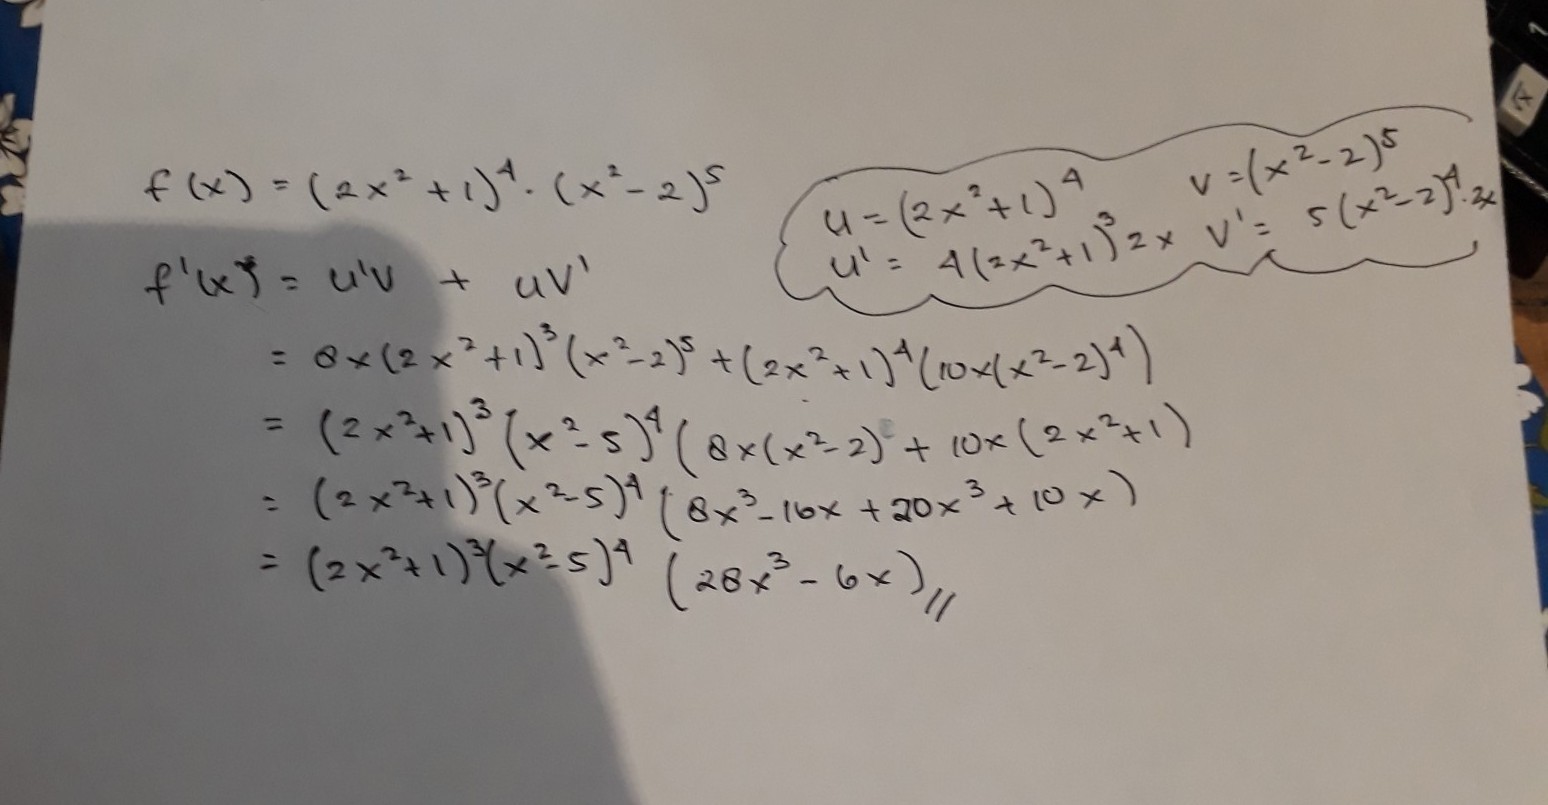 f(x) = (2x² + 1)⁴ · (x² - 2)⁵
u = (2x² + 1)⁴ v = (x² - 2)⁵
u' = 4(2x² + 1)³ 2x v' = 5(x² - 2)⁴ · 2x
f'(x) = u'v + uv'
= 8x(2x² + 1)³(x² - 2)⁵ + (2x² + 1)⁴(10x(x² - 2)⁴)
= (2x² + 1)³(x² - 5)⁴(8x(x² - 2) + 10x(2x² + 1)
= (2x² + 1)³(x² - 5)⁴(8x³ - 16x + 20x³ + 10x)
= (2x² + 1)³(x² - 5)⁴ (28x³ - 6x)//